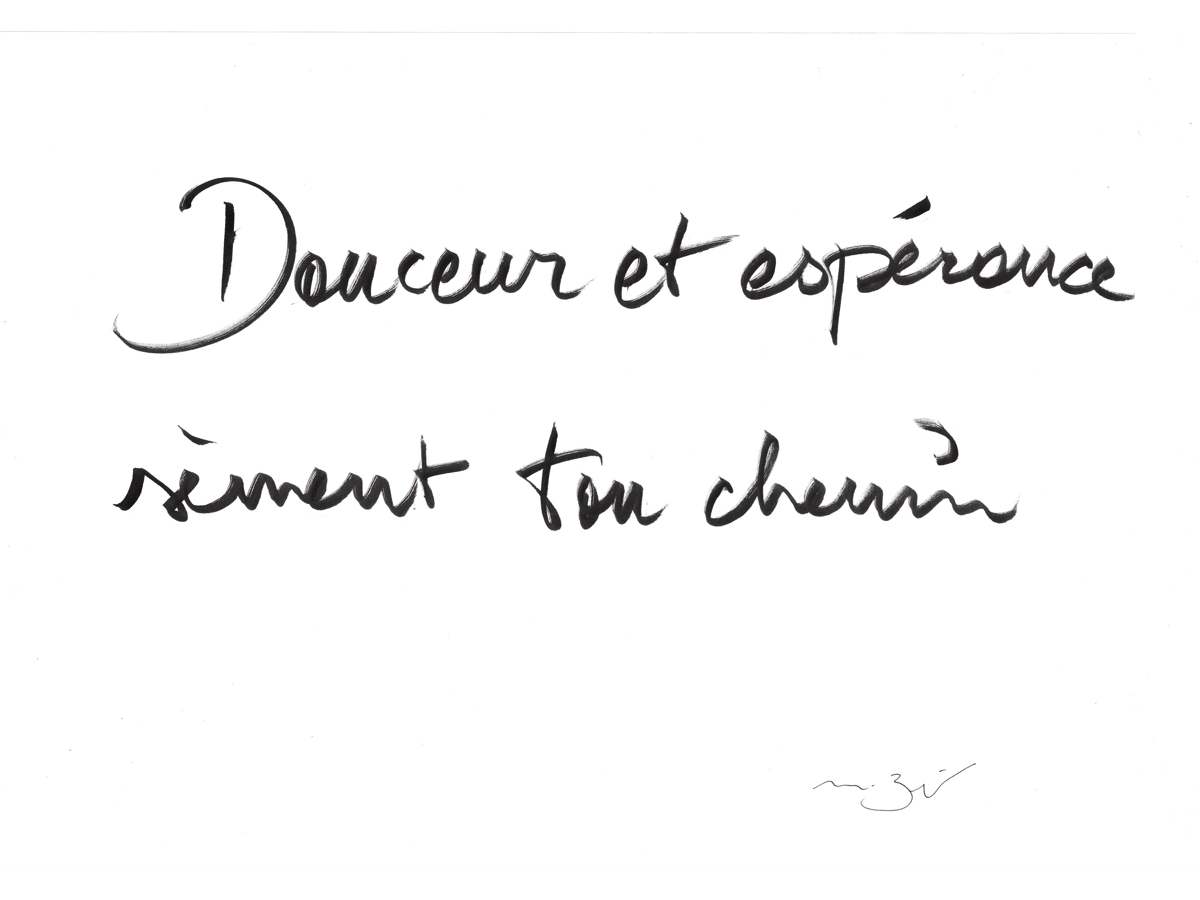 Douceur et espérance
sèment ton chemin